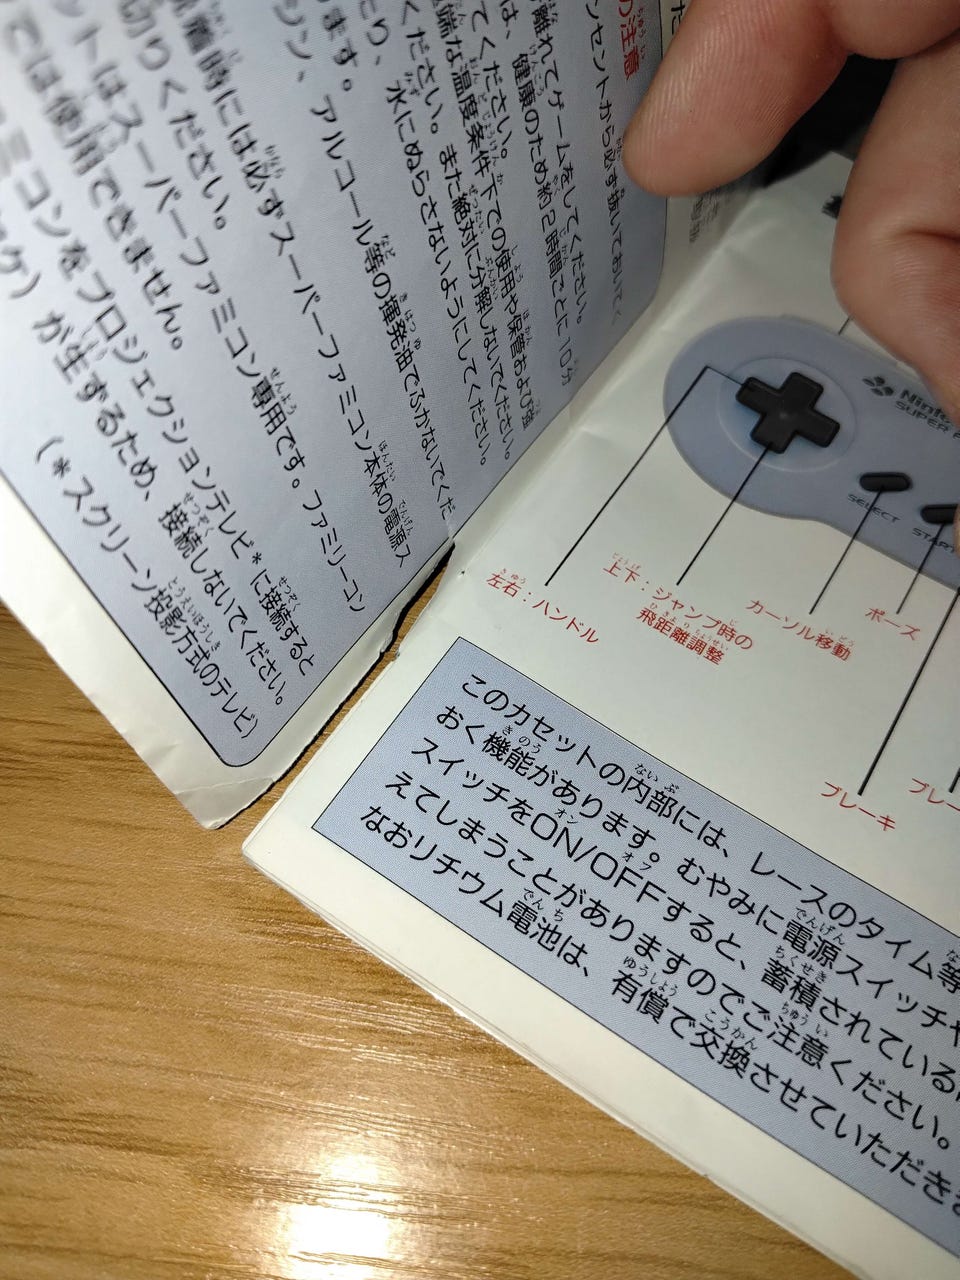 の注意
ンセントから必ず抜いておいて
離れてゲームをしてください。
は、健康のため約2時間ごとに10分
てください。
端な温度条件下での使用や保管および強
ください。また絶対に分解しないでください。
たり、水にぬらさないようにしてください。
シン、アルコール等の揮発油でふかないでくだ
ます。
離時には必ずスーパーファミコン本体の電源ス
切りください。
ットはスーパーファミコン専用です。ファミリーコン
では使用できません。
ミコンをプロジェクションテレビ*に接続すると
ケ）が生ずるため、接続しないでください。
（*スクリーン投影方式のテレビ）
Ninte
SUPER F
SELECT
START
左右：ハンドル
上下：ジャンプ時の
飛距離調整
カーソル移動
ポーズ
ブレーキ
ブレー
このカセットの内部には、レースのタイム等
おく機能があります。むやみに電源スイッチや
スイッチをON/OFFすると、蓄積されている
えてしまうことがありますのでご注意ください。
なおリチウム電池は、有償で交換させていただき